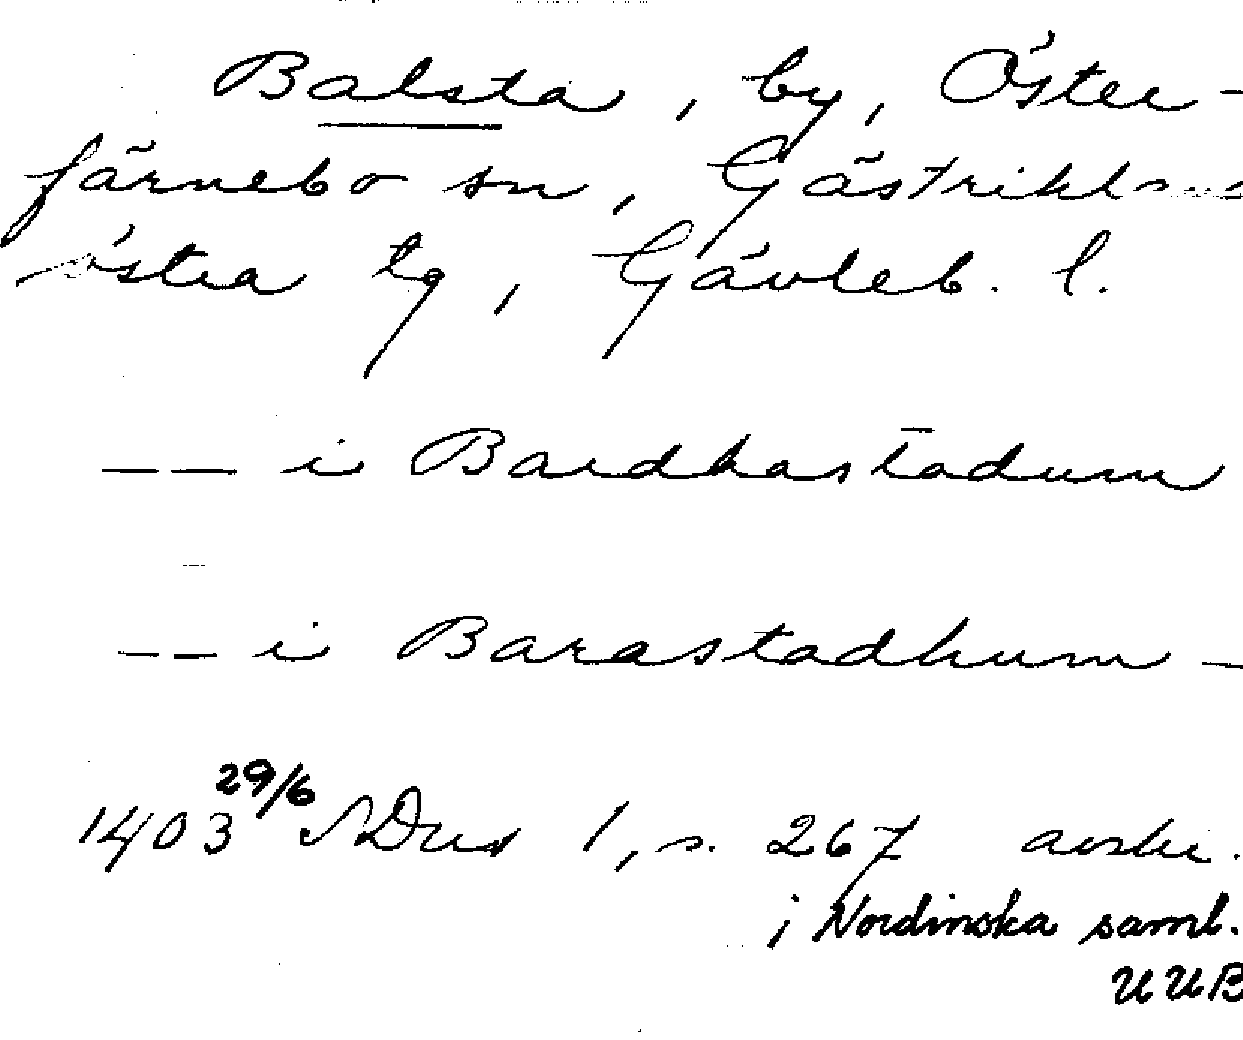 Balsta, by, Öster-
färnebo sn, Gästriklands
östra tg, Gävleb. l.
—— i Bardhastadum
—— i Barastadhum —
1403 29/6 NDns 1, s. 267 avskr.
i Nordinska saml.
UUB